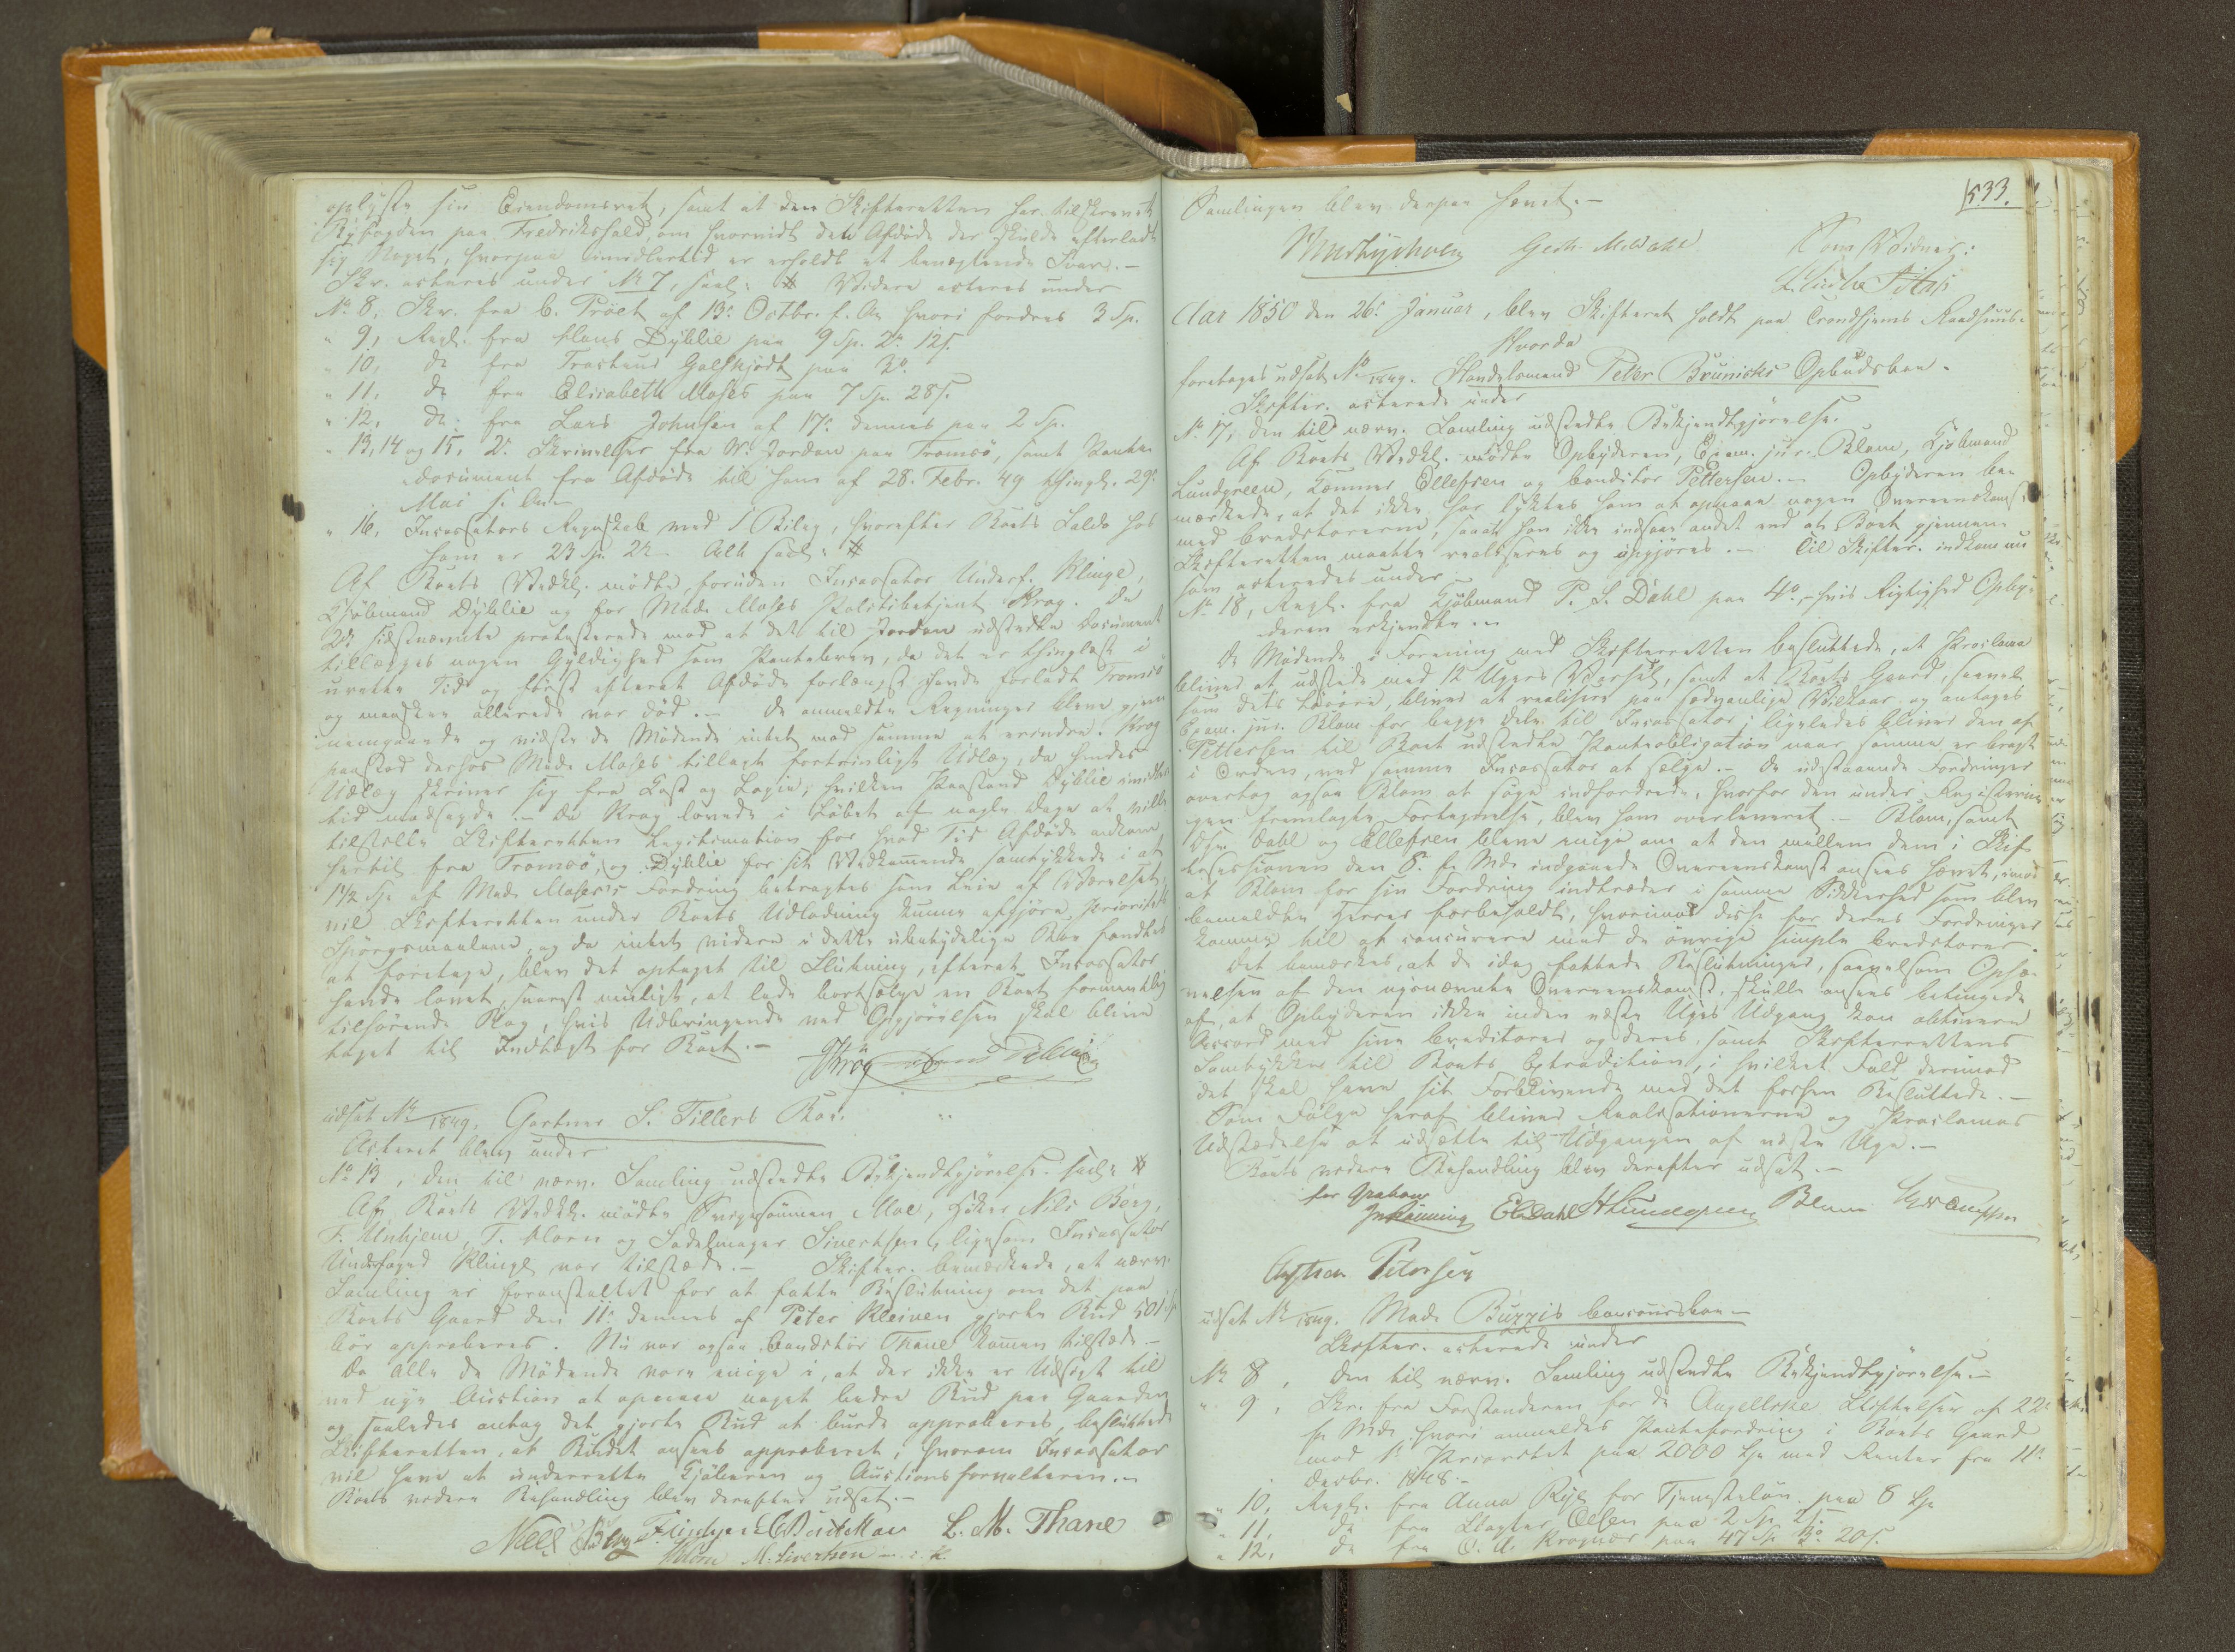 oplyste sin Eiendomsret, samt at den Skifteretten har tilskrevet
Byfogden paa Fredrikshald, om hvorvidt den Afdøde der skulde efterladt
sig Noget, hvorpaa imidlertid er erholdt et benægtende Svar.-
Skr. acteres under No 7, saal: # Videre acteres under
No 8, Skr. fra C. Tröet af 13. Octbr. f. A. hvori fordres 3 Sp.
" 9, Regl. fra Claus Dyblie paa 9 Sp. 2 12 s.
" 10, do fra Trochund Galskjødt paa 3
" 11, do fra Elisabeth Moses paa 7 Sp. 28 s.
" 12, do fra Lars Johnsen af 17 dennes paa 2 Sp.
" 13, 14 og 15, 2 Skrivelser fra W. Jordan paa Tromsö, samt Pante-
document fra Afdøde til ham af 28. Febr. 49 thinglæst 29
Mai s. A.
" 16, Incassators Regnskab med 5 Bilag, hvorefter Boets Saldo hos
ham er 23 Sp. 2 Alt saal: #
Af Boets Vedkl. mødte, foruden Incassator Underf. Klinge,
Kjöbmand Dyblie og for Mad. Moses Politibetjent Krog. De
2de sidstnævnte protesterede mod at det til Jordan udstedte Document
tillægges nogen Gyldighed som Pantebrev, da det er thinglæst i
urette Tid og først efterat Afdøde forlængst havde forladt Tromsö
og maaskee allerede var død.- De anmeldte Regninger bleve gjen-
nemgaaede og vidste de Mødende intet mod samme at erindre. Krog
paastod derhos Mad. Moses tillagt fortrinligt Udlæg, da hendes
Udlæg skriver sig fra Kost og Logie; hvilken Paastand Dyblie imidler-
tid modsagde.- Da Krog lovede i Løbet af nogle Dage at ville
tilstille Skifteretten Legitimation for hvad Tid Afdøde ankom
hertil fra Tromsö, og Dyblie for sit Vedkommende samtykkede i at
1 1/2 Sp af Mad. Moses's Fordring betragtes som Leie af Værelset,
vil Skifteretten under Boets Udlodning kunne afgjøre Prioritets
Spörgsmaalene, og da intet videre i dette ubetydelige Bo fandtes
at foretage, blev det optaget til Slutning, efterat Incassator
havde lovet, snarest muligt, at lade bortsælge en Boet formentlig
tilhörende Bog, hvis Udbringende ved Opgjörelsen skal blive
taget til Indtægt for Boet.-
Krog
udsat No /1849. Gartner S. Tillers Bo.
Acteret blev under
No 13, den til nærv. Samling udstedte Bekjendtgjørelse. saal: #
Af Boets Vedkl. mødte Svigersønnen Moe, Høker Nils Berg,
F. Unhjem, T. Klorn og Sadelmager Sivertsen, ligesom Incassator
Underfoged Klinge var tilstede.- Skifter. bemærkede, at nærv.
Samling er foranstaltet for at fatte Beslutning om det paa
Boets Gaard den 11 dennes af Peter Kleiven gjorte Bud 501 Sp
bör approberes. Nu var ogsaa Conditor Thane kommen tilstede.-
Da alle de Mødende vare enige i, at der ikke er Udsigt til
ved nye Auction at opnaae noget bedre Bud paa Gaarden
og saaledes antog det gjorte Bud at burde approberes, besluttede
Skifteretten, at Budet ansees approberet, hvorom Incassator
vil have at underrette Kjøberen og Auctionsforvalteren.-
Boets videre Behandling blev derefter udsat.-
Niels Berg L. M. Thane
M. Sivertsen
533.
Samlingen blev derpaa hævet.-
Som Vidner:
Aar 1850 den 26 Januar, blev Skifteret holdt paa Trondhjems Raadhuus.
Hvorda
foretages udsat No /1849. Handelsmand Peter Brunicks Opbudsbo.
Skifter. acterede under
No 17, den til nærv. Samling udstedte Bekjendtgjörelse.
Af Boets Vedkl. mødte Opbyderen, Exam. jur. Blom, Kjöbmand
Lundgreen, Kæmner Ellefsen og Conditor Pettersen.- Opbyderen be-
mærkede, at det ikke har lykkes ham at opnaae nogen Overeenskomst
med Creditorerne, saaat han ikke indsaae andet end at Boet gjennem
Skifteretten maatte realiseres og opgjöres.- Til Skifter. indkom nu
som acteredes under
No 18, Regl. fra Kjöbmand P. S. Dahl paa 4 - hvis Rigtighed Opby-
deren erkjendte.-
De Mødende i Forening med Skifteretten besluttede, at Proclama
bliver at udstede med 12 Ugers Varsel, samt at Boets Gaard, saavel
som dets Løsøre, bliver at realisere paa sædvanlige Vilkaar, og antages
Exam. jur. Blom for begge Dele til Incassator; ligeledes bliver den af
Pettersen til Boet udstedte Panteobligation naar samme er bragt
i Orden, ved samme Incassator at sælge.- De udstaaende Fordringer
overtog ogsaa Blom at søge indfordrede, hvorfor den under Registerin-
gen fremlagte Fortegnelse, blev ham overleveret.- Blom, samt
Dhrr. Dahl og Ellefsen bleve enige om at den mellem dem i Skif-
tesessionen den 8. d. Md. indgaaede Overeenskomst ansees hævet, imod
at Blom for sin Fordring indtræder i samme Sikkerhed som blev
bemeldte Herrer forbeholdt, hvorimod disse for deres Fordringer
kommer til at concurrere med de övrige simple Creditorer.
Det bemærkes, at de idag fattede Beslutninger, saavelsom Ophæ-
velsen af den ugjennævnte Overeenskomst, skulle ansees betingede
af, at Opbyderen ikke inden næste Uges Udgang kan obtinere
Accord med sine Creditorer og deres, samt Skifterettens
Samtykke til Boets Extradition, i hvilket Fald derimod
det skal have sit Forblivende med det forhen Besluttede.-
Som Følge heraf bliver Realisationerne og Proclamas
Udstedelse at udsætte til Udgangen af næste Uge.-
Boets videre Behandling blev derefter udsat.-
for Grabow
Dahl Lundgreen Blom
Petersen
udsat No /1849. Mad. Buggis Concoursbo.-
Skifter. acterede under
No 8, den til nærv. Samling udstedte Bekjendtgjørelse.-
" 9, Skr. fra Forstanderen for de Angellske Stiftelser af 22
d. Md. hvori anmeldes Pantefordring i Boets Gaard
mod 1 Prioritet paa 2000 Sp. med Renter fra 11
Decbr. 1848.-
" 10, Regl. fra Anna Rye for Tjenesteløn paa 8 Sp
" 11, do fra Slagter Olsen paa 2 Sp.
" 12, do fra O. A. Krognæs paa 47 Sp. 3 20 s.